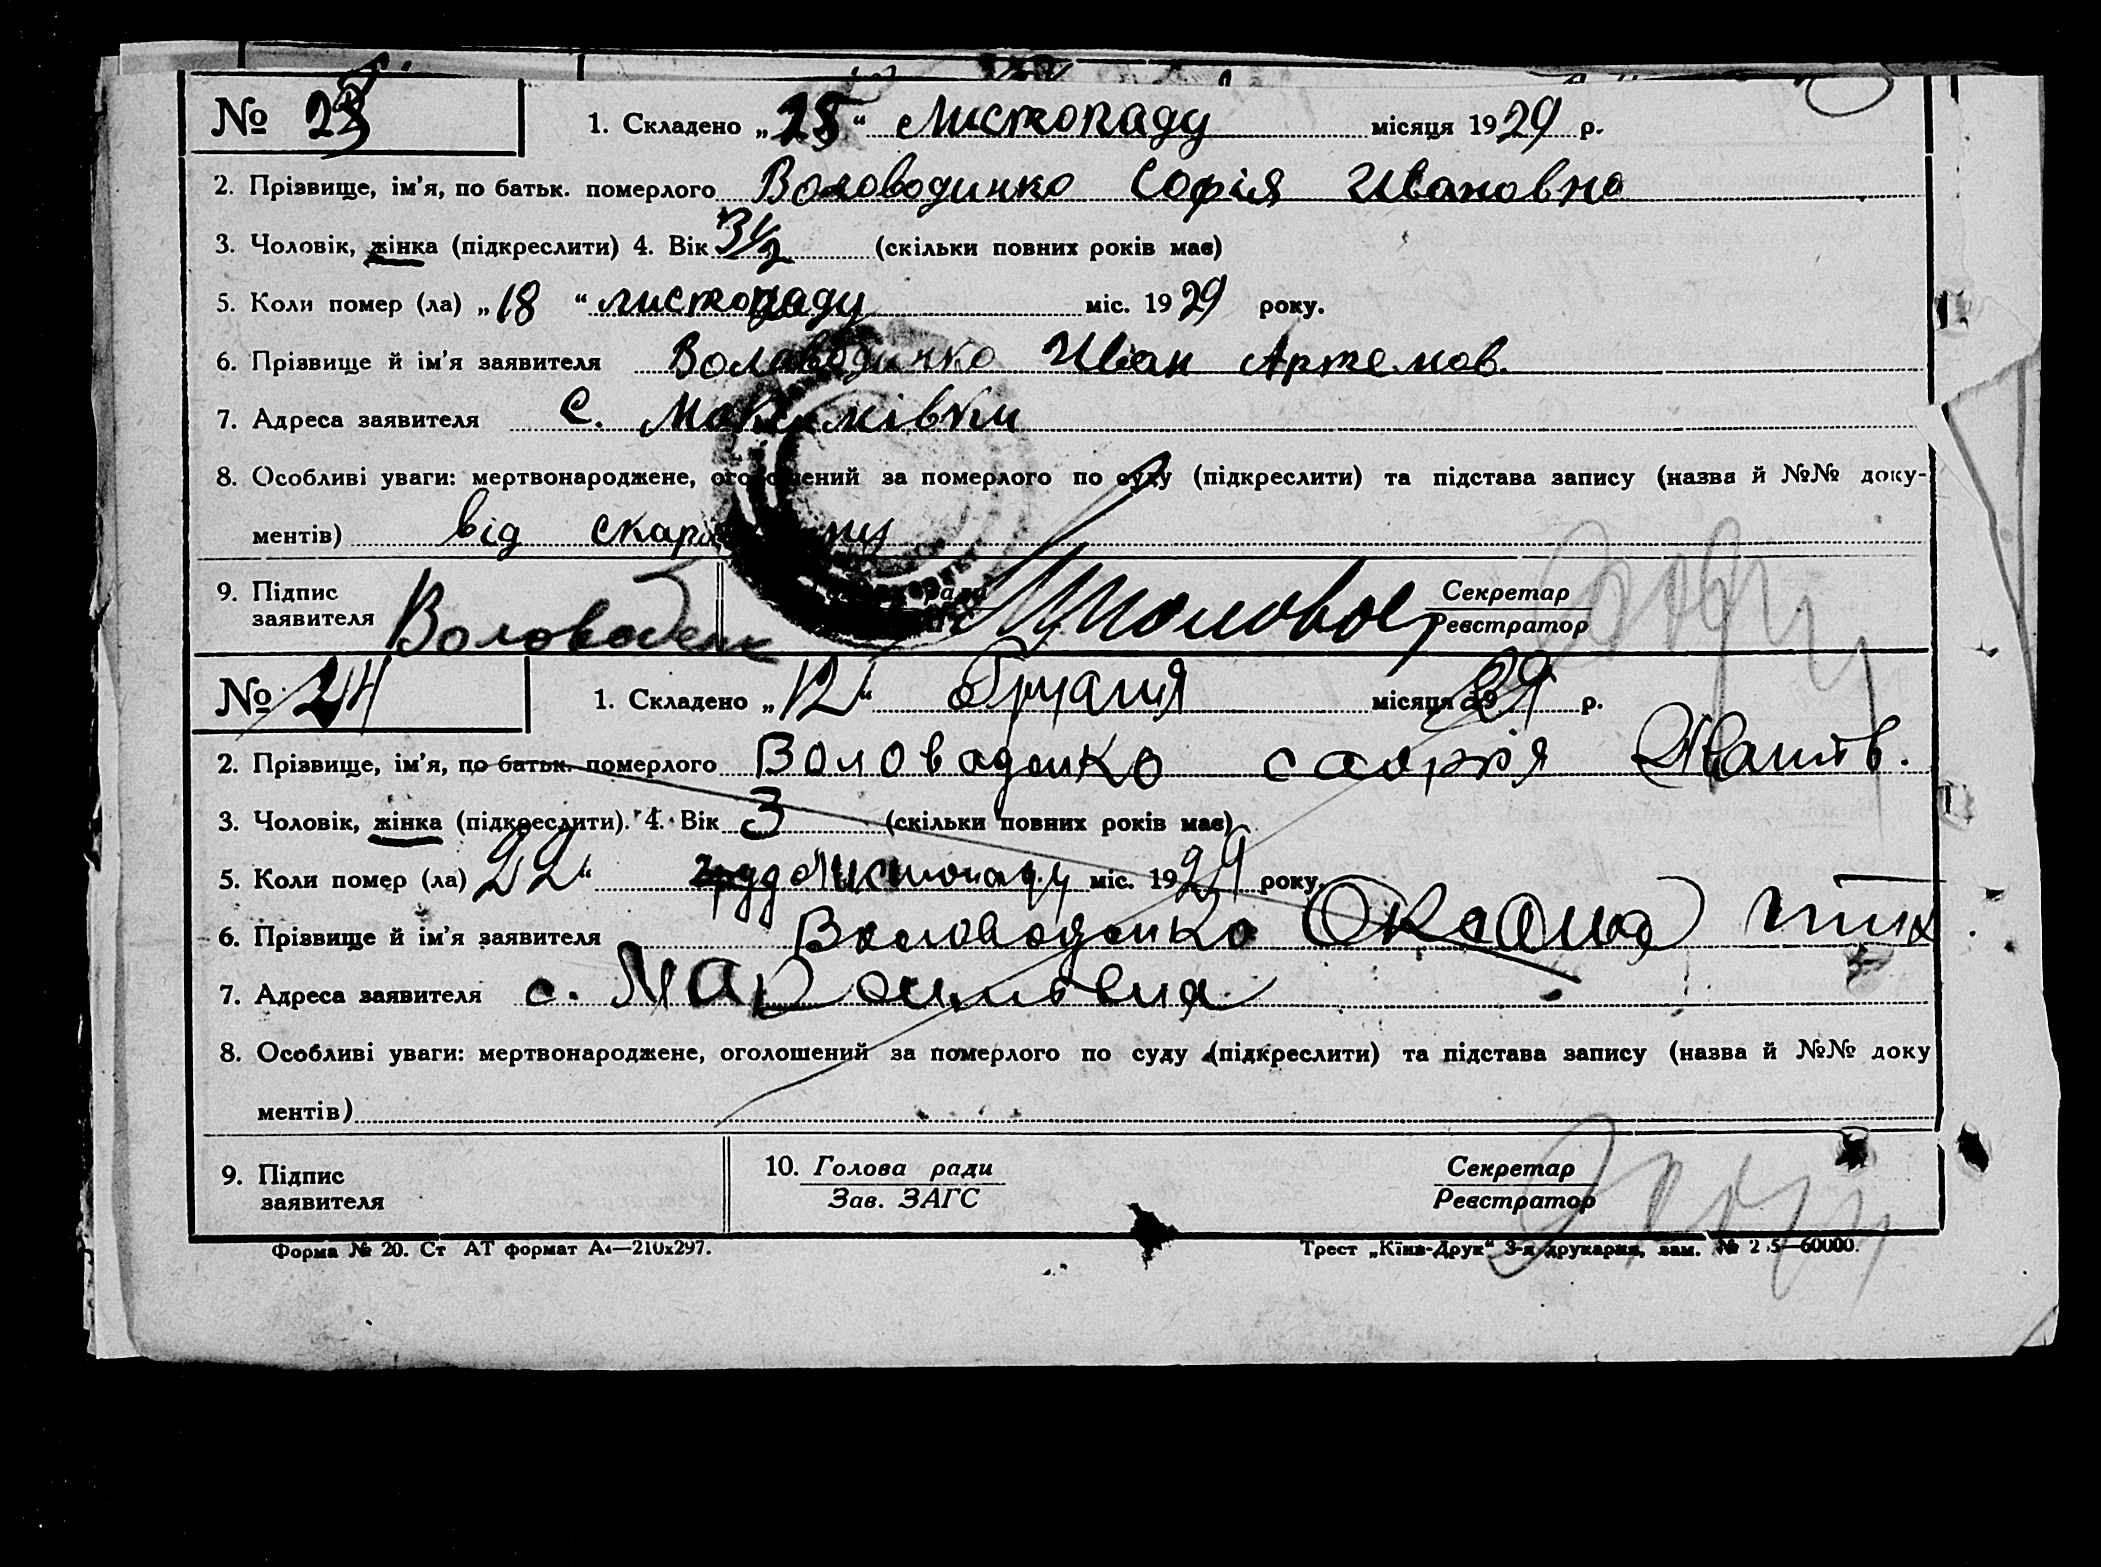 № 23
1. Складено „25“ Листопаду місяця 1929 р.
2. Прізвище, ім'я, по батьк. померлого Воловодинко Софія Ивановна
3. Чоловік, жінка (підкреслити) 4. Вік 3½ (скільки повних років має)
5. Коли помер (ла) „18“ листопаду міс. 1929 року.
6. Прізвище й ім'я заявителя Воловодинко Иван Артемов.
7. Адреса заявителя с. Максимівки
8. Особливі уваги: мертвонароджене, оголошений за померлого по суду (підкреслити) та підстава запису (назва й №№ доку-
ментів) від
9. Підпис заявителя Секретар
Реєстратор
№ 24
1. Складено „12“ Грудня місяця 1929 р.
2. Прізвище, ім'я, по батьк. померлого Воловаденко
3. Чоловік, жінка (підкреслити). 4. Вік 3 (скільки повних років має)
5. Коли помер (ла) „22“ груд Листопаду міс. 1929 року.
6. Прізвище й ім'я заявителя Воловоденко Оксана
7. Адреса заявителя с.
8. Особливі уваги: мертвонароджене, оголошений за померлого по суду (підкреслити) та підстава запису (назва й №№ доку
ментів)
9. Підпис заявителя 10. Голова ради Секретар
Зав. ЗАГС Реєстратор
Форма № 20. Ст АТ формат А4—210х297. Трест „Київ-Друк“ 3-я друкарня, зам. №